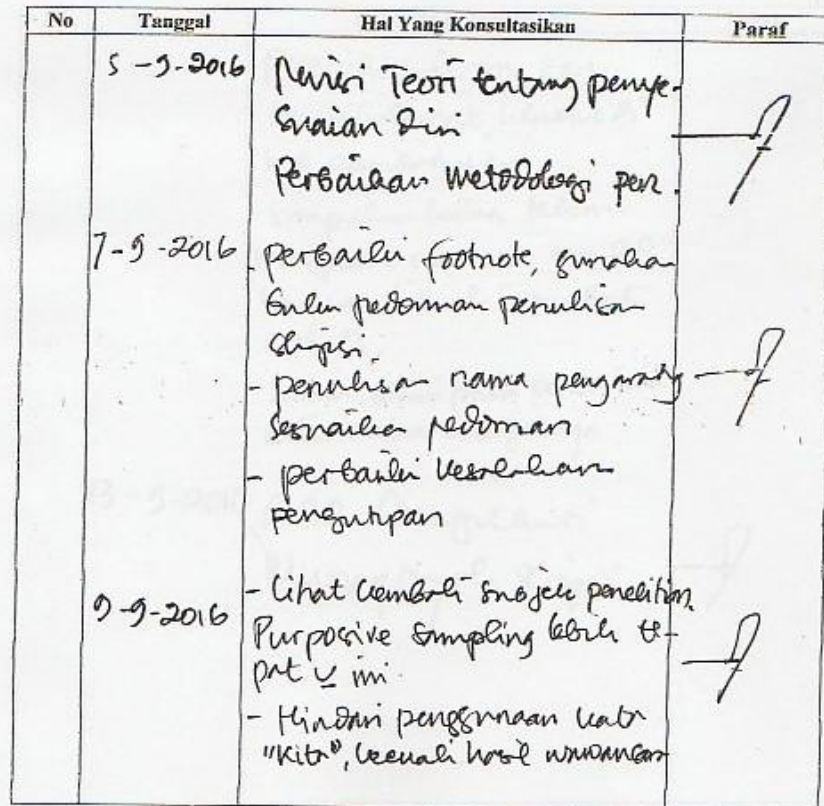 No Tanggal Hal Yang Konsultasikan Paraf
5-9-2016 Revisi Teori tentang penye-
suaian diri
Perbaikan metodologi pen.
7-9-2016 perbaiki footnote, gunakan
buku pedoman penulisan
skripsi.
- penulisan nama pengarang
sesuaikan pedoman
- perbaiki kesalahan
pengutipan
9-9-2016 - Lihat kembali subjek penelitian.
Purposive sampling lebih te-
pat u ini.
- Hindari penggunaan kata
"kita", kecuali hasil wawancara